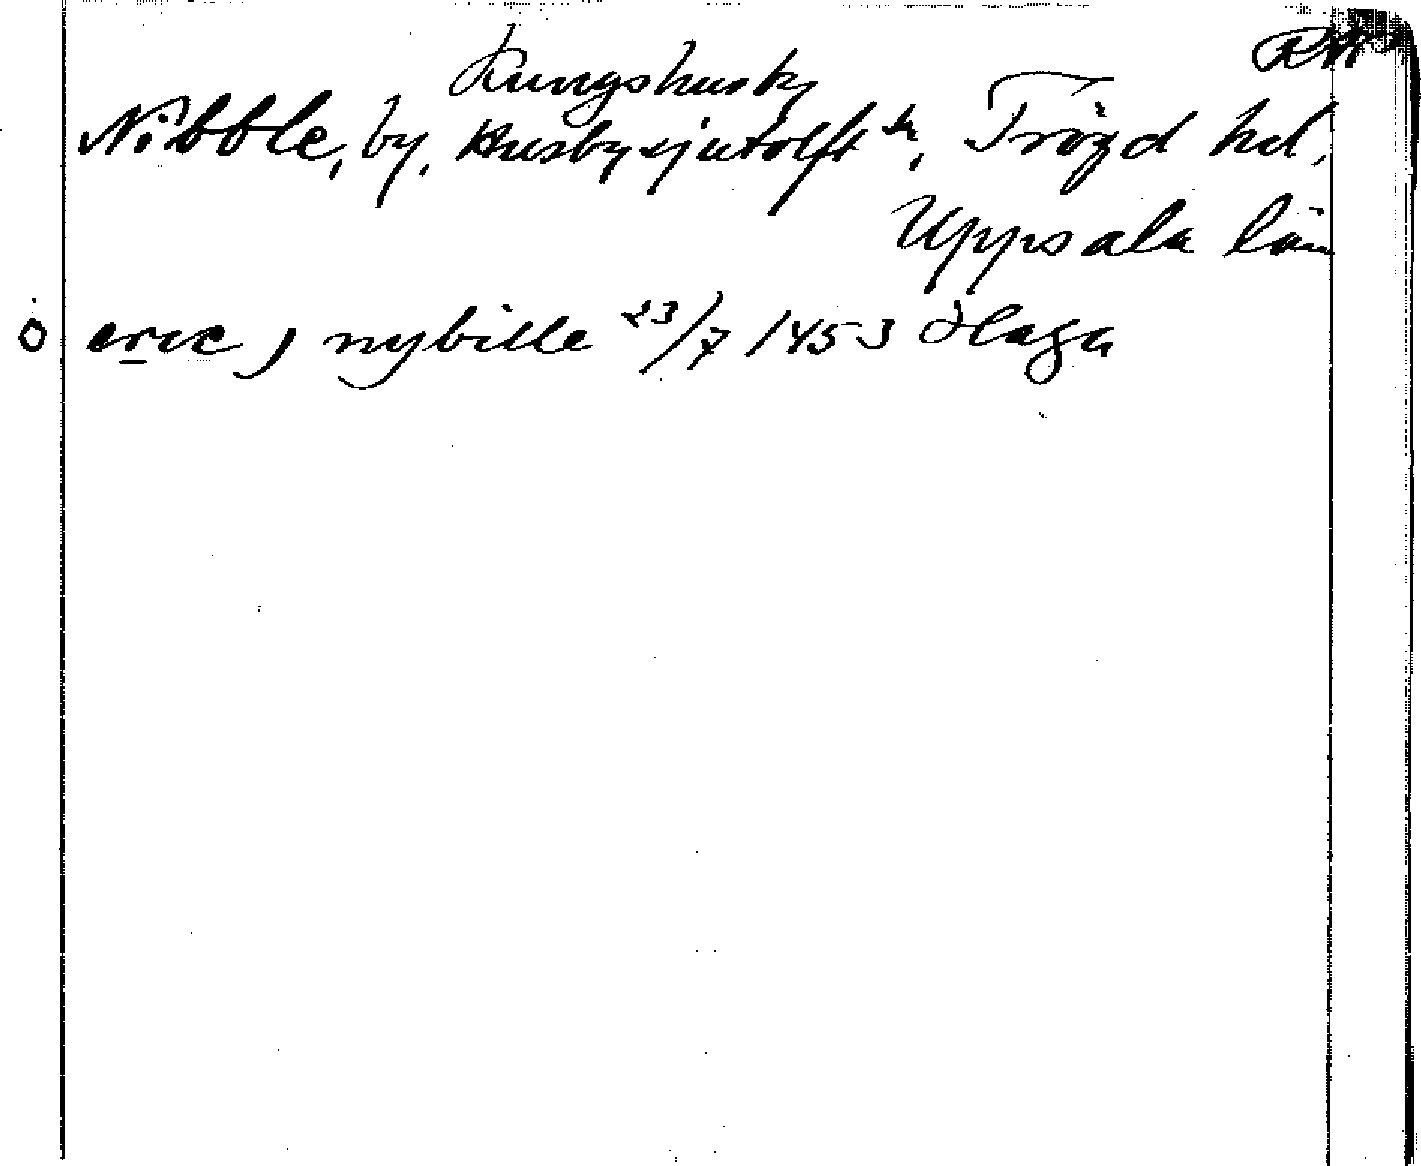 RA
Kungshusby
Nibble, by, Husbysjutolft sn, Trögd hd,
Uppsala län
o eric j nybille 23/7 1453 Haga